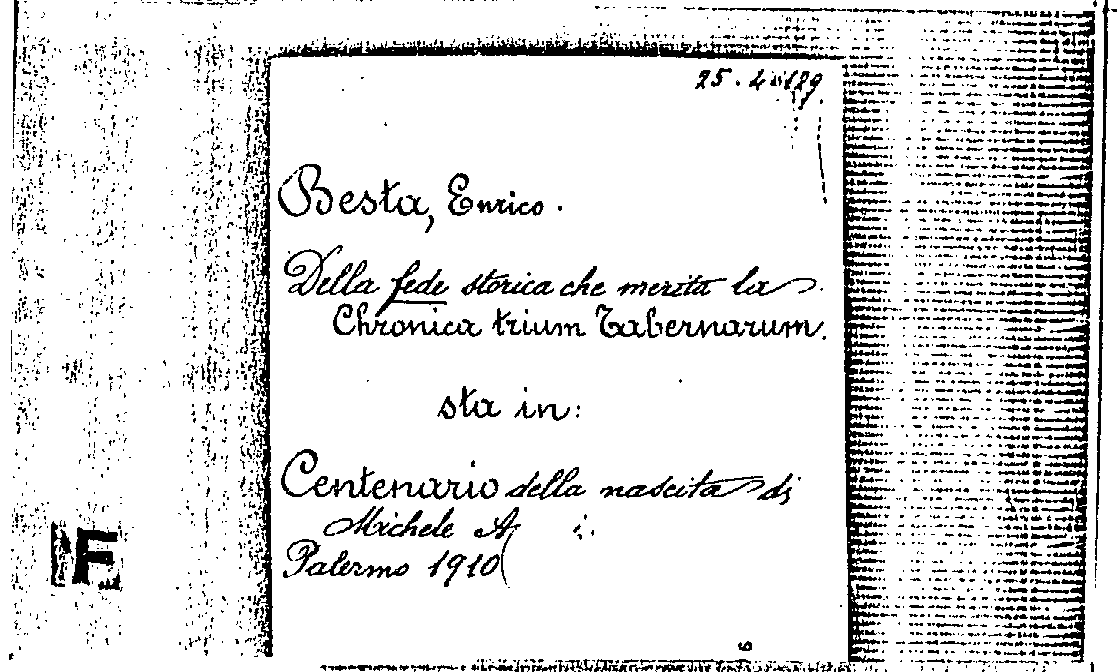 25.4
Besta, Enrico.
Della fede storica che merita la
Chronica trium Tabernarum.
sta in:
Centenario della nascita di
Michele A
Palermo 1910
IF